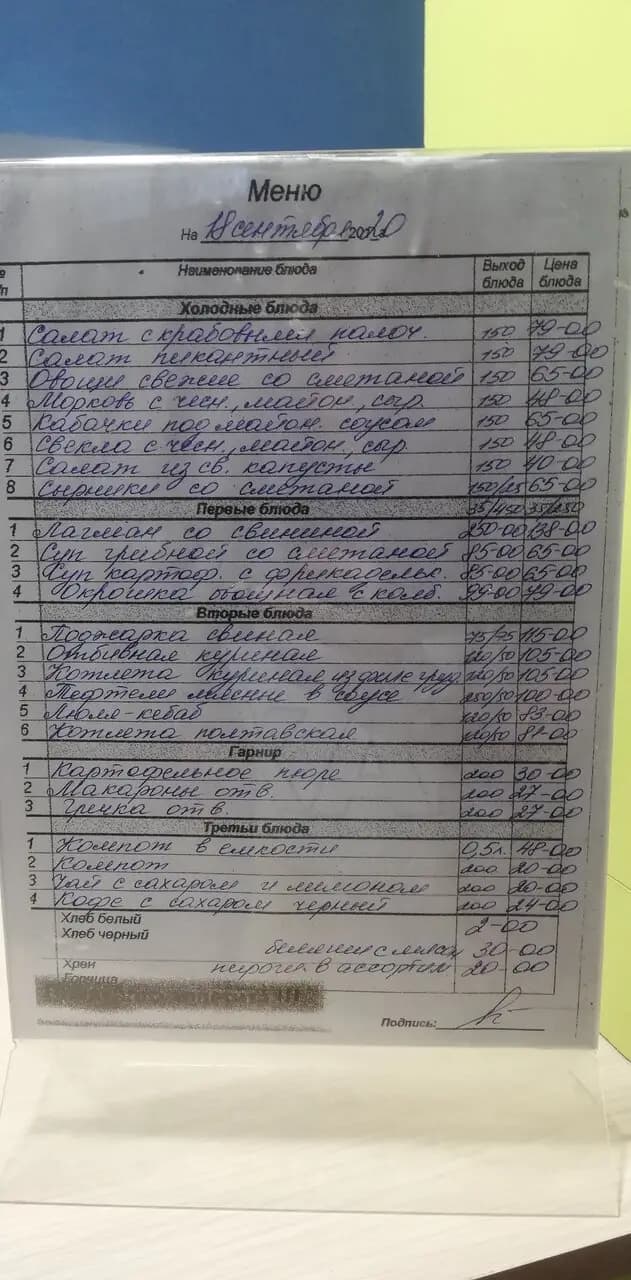 Меню
На 18 сентября 2020
№ п/п Наименование блюда Выход блюда Цена блюда
Холодные блюда
1 Салат с крабовыми палоч. 150 79-00
2 Салат пикантный 150 79-00
3 Овощи свежие со сметаной 150 65-00
4 Морковь с чесн., майон, сыр 150 48-00
5 Кабачки под майон. соусом 150 65-00
6 Свекла с чесн., майон, сыр 150 48-00
7 Салат из св. капусты 150 40-00
8 Сырники со сметаной 150/25 65-00
Первые блюда 35/450 35/250
1 Лагман со свининой 250-00 138-00
2 Суп грибной со сметаной 85-00 65-00
3 Суп картоф. с фрикадельк. 85-00 65-00
4 Окрошка с колб. 99-00 79-00
Вторые блюда
1 Поджарка свиная 75/75 115-00
2 Отбивная куриная 105-00
3 Котлета куриная из филе груд 105-00
4 Тефтели мясные в соусе 100-00
5 Люля-кебаб 83-00
6 Котлета полтавская
Гарнир
1 Картофельное пюре 200 30-00
2 Макароны отв. 200 27-00
3 Гречка отв. 200 27-00
Третьи блюда
1 Компот в емкости 0,5л. 48-00
2 Компот 200 20-00
3 Чай с сахаром и лимоном 200 20-00
4 Кофе с сахаром черный 200 24-00
Хлеб белый 2-00
Хлеб черный
беляши с мясом 30-00
Хрен пироги в ассортим 20-00
Горчица
Подпись: